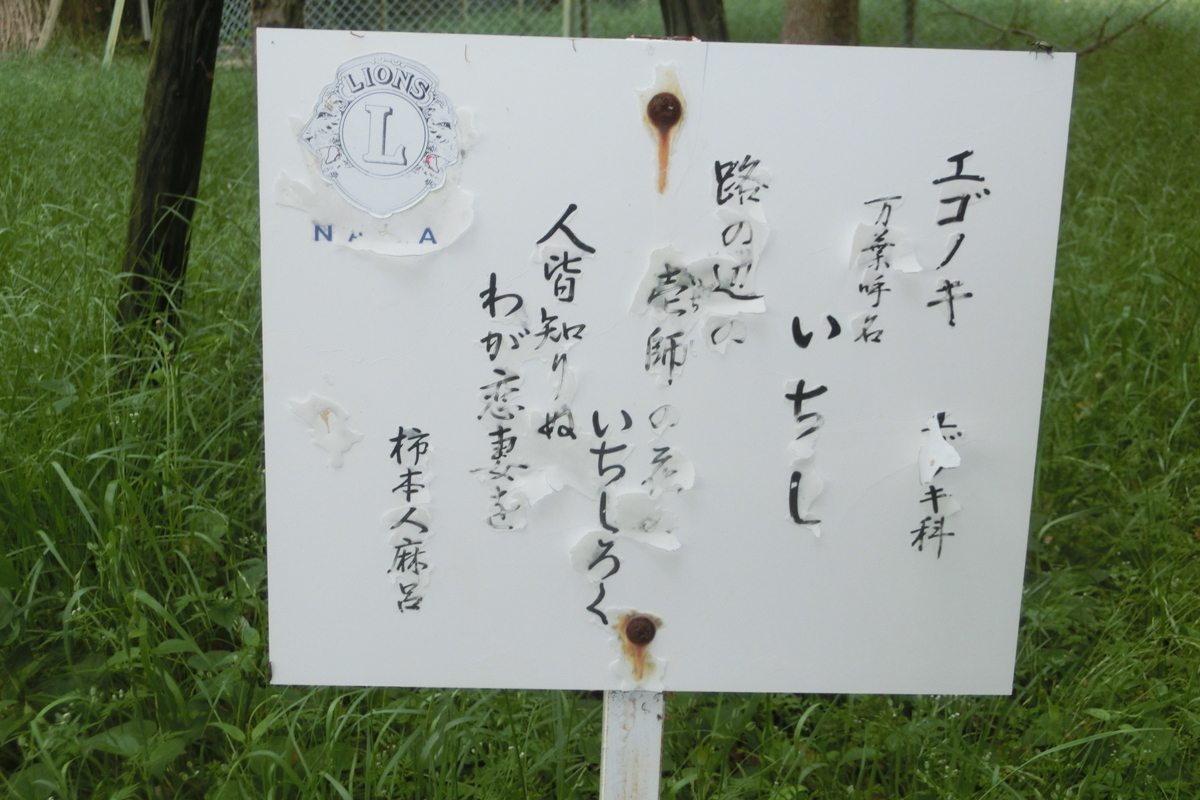 エゴノキ
キ科
万葉呼名
いちし
路の辺の
壱師の花の
いちしろく
人皆知りぬ
わが恋妻を
柿本人麻呂
LIONS
L